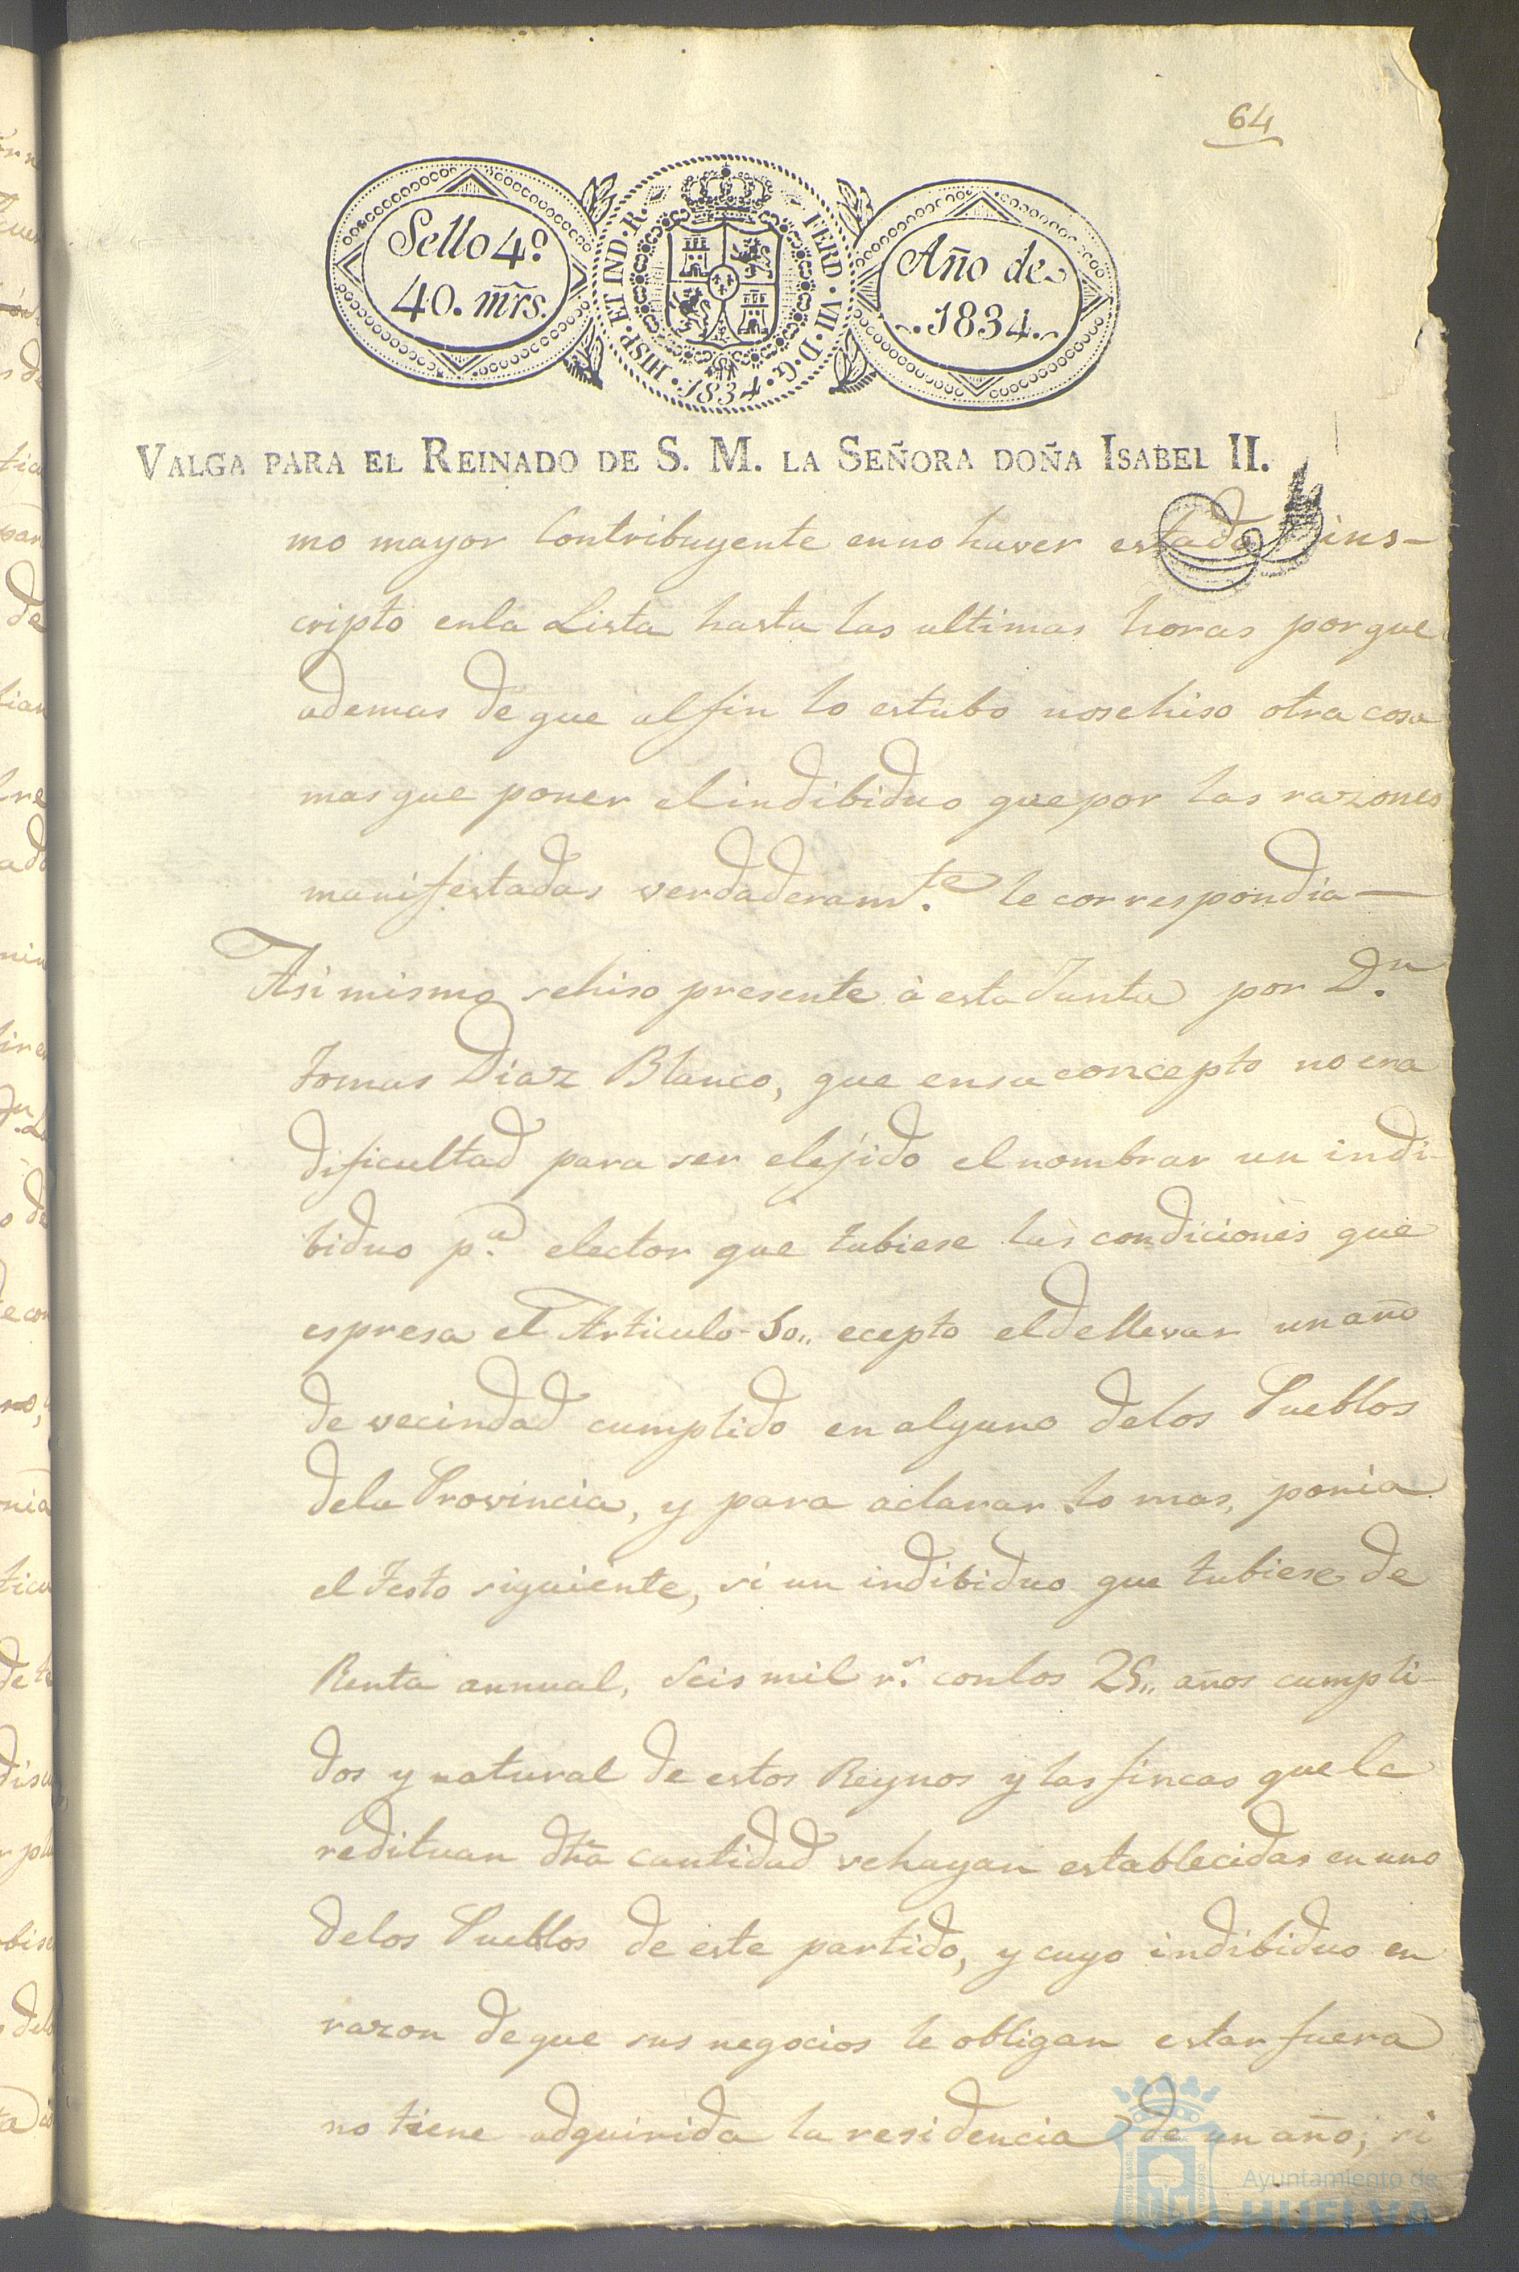 64
Sello 4º
40. mrs.
HISP. ET IND. R. FERD. VII. D. G. 1834.
Año de
1834.
VALGA PARA EL REINADO DE S. M. LA SEÑORA DOÑA ISABEL II.
mo mayor Contribuyente en no haver estado ins-
cripto enla Lista hasta las ultimas horas porque
ademas de que al fin lo estubo nosehiso otra cosa
mas que poner el indibiduo que por las razones
manifestadas verdaderamte. le correspondia —
Asi mismo sehiso presente à esta Junta por Dn.
Tomas Diaz Blanco, que ensu concepto no era
dificultad para ser elejido el nombrar un indi-
biduo pa. elector que tubiese las condiciones que
espresa el Articulo 50,, ecepto el de llevar un año
de vecindad cumplido en alguno delos Pueblos
dela Provincia, y para aclarar lo mas, ponia
el testo siguiente, si un indibiduo que tubiese de
Renta annual, Seis mil rs. conlos 25,, años cumpli-
dos y natural de estos Reynos y las fincas que le
redituan dha cantidad sehayan establecidas en uno
delos Pueblos de este partido, y cuyo indibiduo en
razon deque sus negocios le obligan estar fuera
no tiene adquirida la residencia de un año, si
Ayuntamiento de
HUELVA